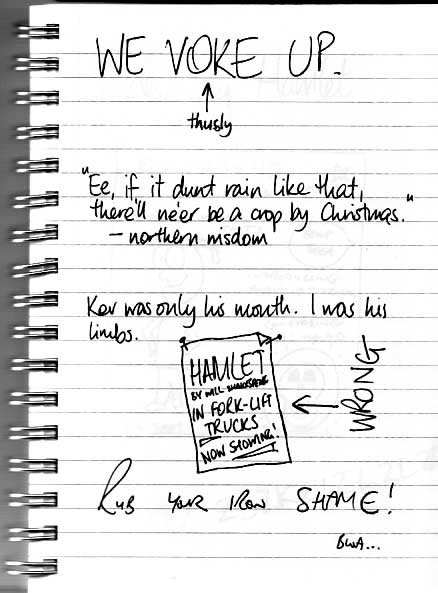 WE VOKE UP.
thusly
"Ee, if it dunt rain like that,
there'll ne'er be a crop by Christmas."
- northern wisdom
Kev was only his mouth. I was his
limbs.
HAMLET
BY WILL SHAKESPEARE
IN FORK-LIFT
TRUCKS
NOW SHOWING!
WRONG
RUB YOUR IRON SHAME!
BWA...